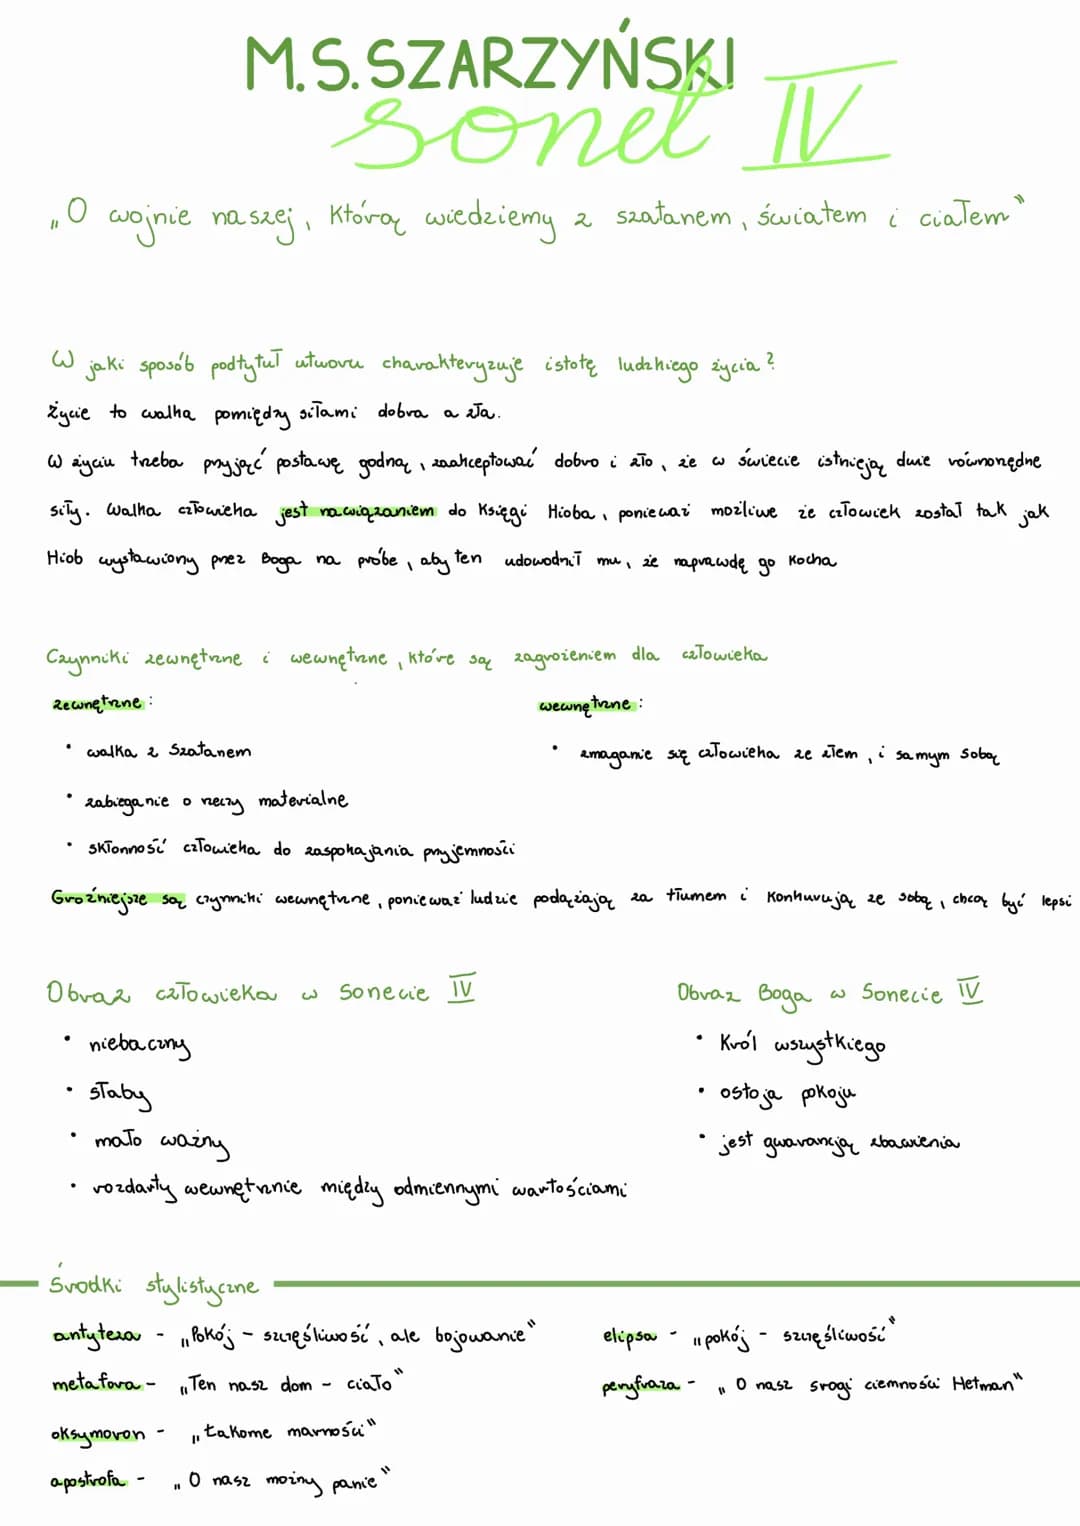 M.S.SZARZYŃSKI
sonet IV
„O wojnie naszej, którą wiedziemy z szatanem, światem i ciałem"
W jaki sposób podtytuł utworu charakteryzuje istotę ludzkiego życia?
Życie to walka pomiędzy siłami dobra a zła.
W życiu trzeba przyjąć postawę godną, zaakceptować dobro i zło, że w świecie istnieją dwie równorzędne
siły. Walka człowieka jest nawiązaniem do Księgi Hioba, ponieważ możliwe że człowiek został tak jak
Hiob wystawiony przez Boga na próbę, aby ten udowodnił mu, że naprawdę go kocha
Czynniki zewnętrzne i wewnętrzne, które są zagrożeniem dla człowieka
zewnętrzne:
wewnętrzne:
• walka z Szatanem
• zmaganie się człowieka ze złem, i samym sobą
• zabieganie o rzeczy materialne
• skłonność człowieka do zaspokajania przyjemności
Groźniejsze są czynniki wewnętrzne, ponieważ ludzie podążają za tłumem i konkurują ze sobą, chcą być lepsi
Obraz człowieka w sonecie IV
• niebaczny
• słaby
• mało ważny
• rozdarty wewnętrznie między odmiennymi wartościami
Obraz Boga w Sonecie IV
• Król wszystkiego
• ostoja pokoju
• jest gwarancją zbawienia
Środki stylistyczne
antyteza - „Pokój - szczęśliwość, ale bojowanie"
metafora - „Ten nasz dom - ciało"
oksymoron - „łakome marności"
apostrofa - „O nasz możny panie"
elipsa - „pokój - szczęśliwość"
peryfraza - „O nasz srogi ciemności Hetman"